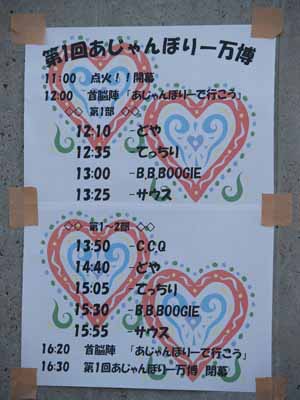 第1回あじゃんぼりー万博
11:00 点火!!開幕
12:00 首脳陣 「あじゃんぼりーで行こう」
◇◇ 第1部 ◇◇
12:10 -どや
12:35 -てっちり
13:00 -B.B.BOOGIE
13:25 -サウス
◇◇ 第1~2部 ◇◇
13:50 -C.C.Q
14:40 -どや
15:05 -てっちり
15:30 -B.B.BOOGIE
15:55 -サウス
16:20 首脳陣 「あじゃんぼりーで行こう」
16:30 第1回あじゃんぼりー万博 閉幕